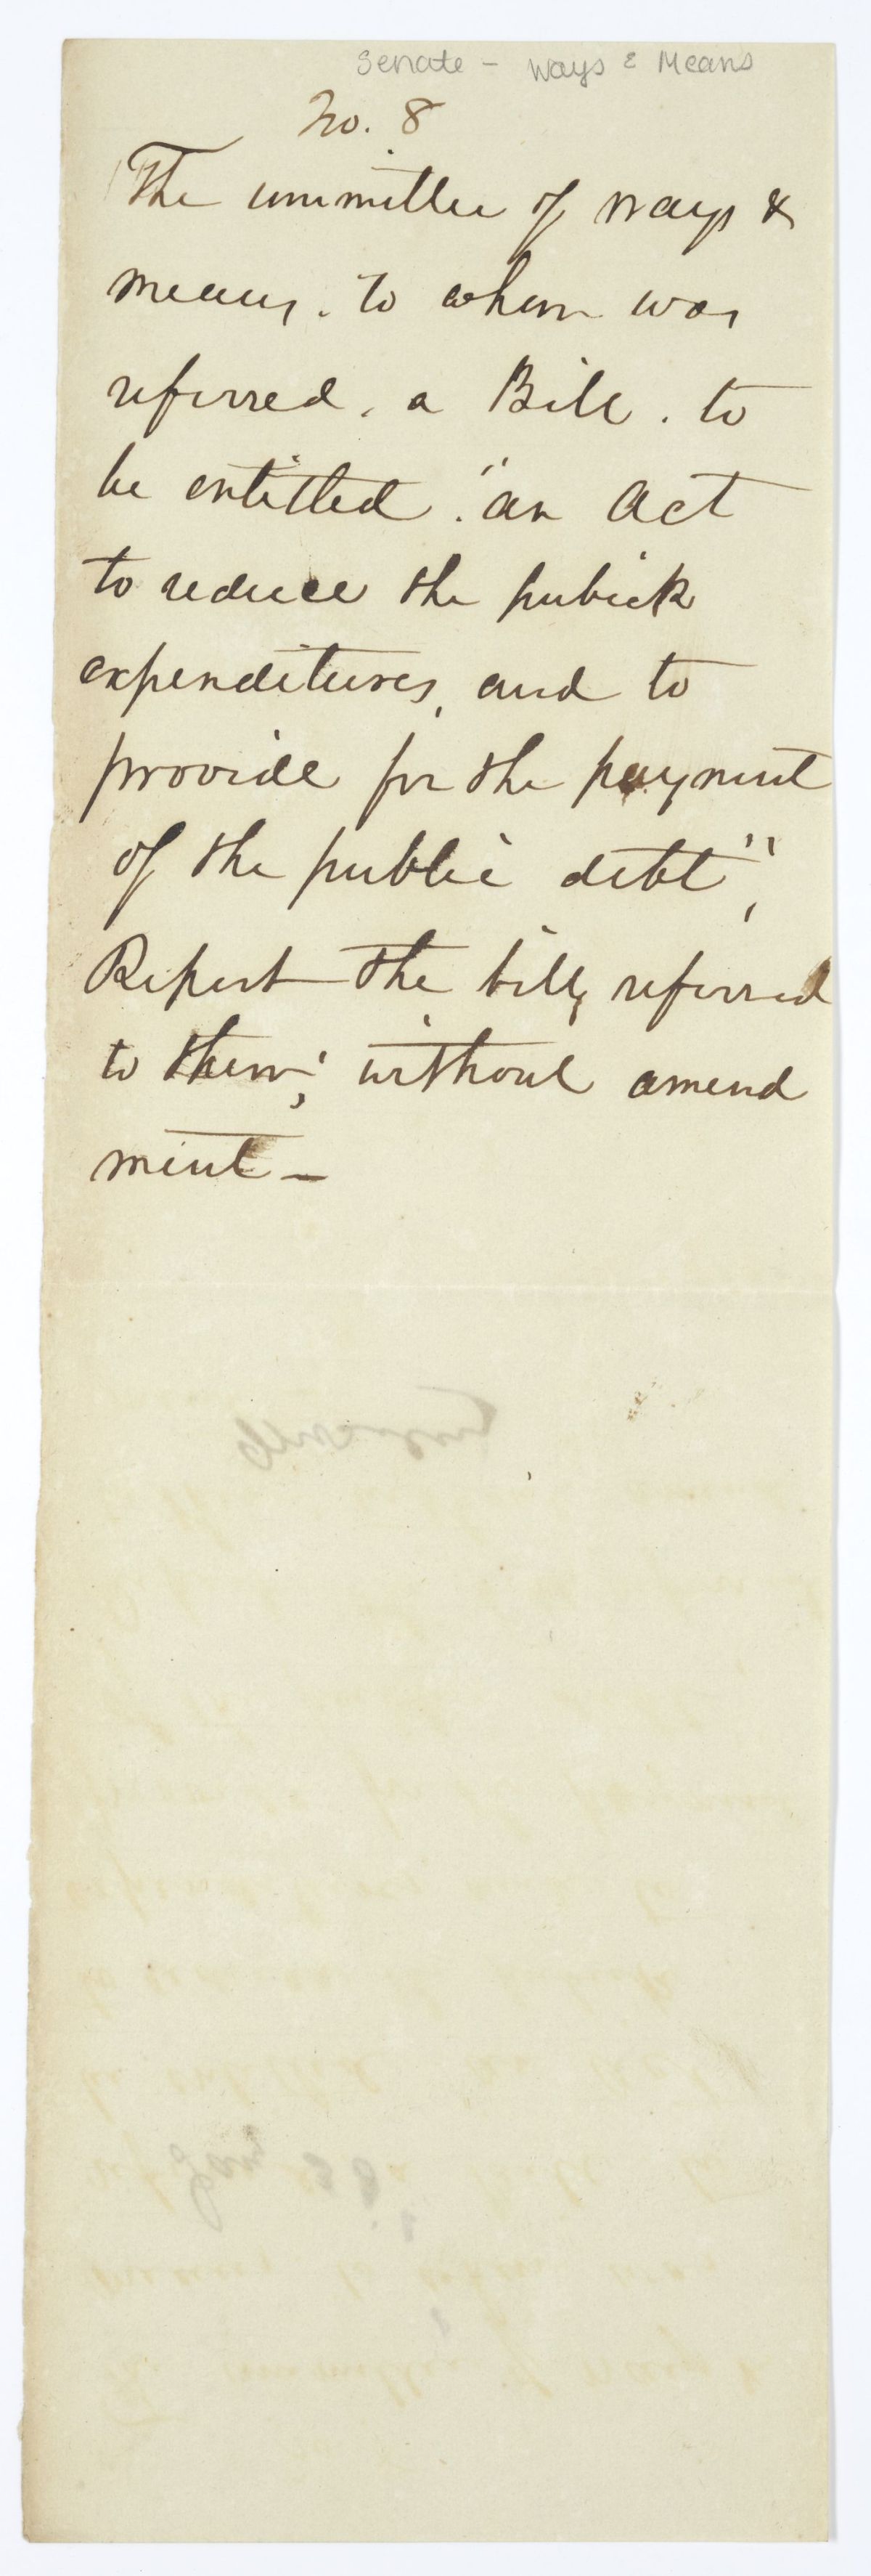 Senate - Ways & Means
No. 8
The committee of ways &
means. to whom was
referred, a Bill. to
be entitled. "an Act
to reduce the publick
expenditures, and to
provide for the payment
of the public debt",
Report the bill, referred
to them; without amend
ment -